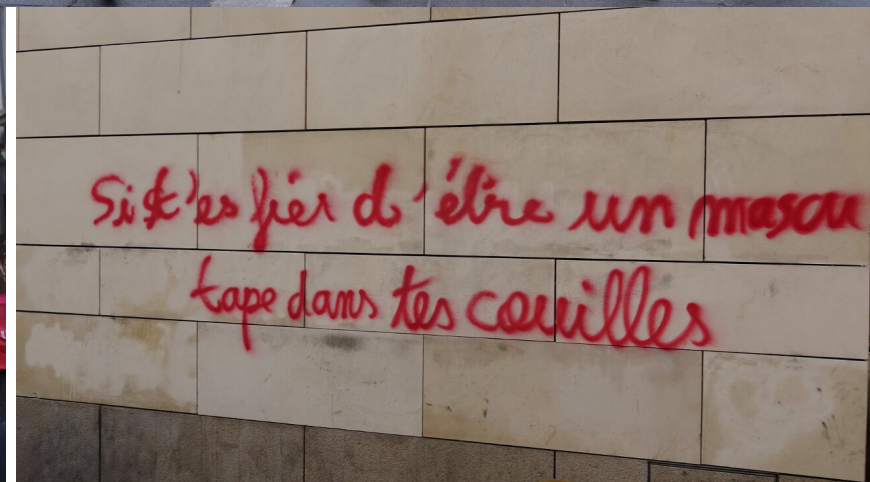 Si t'es fier d'être un masou
tape dans tes couilles